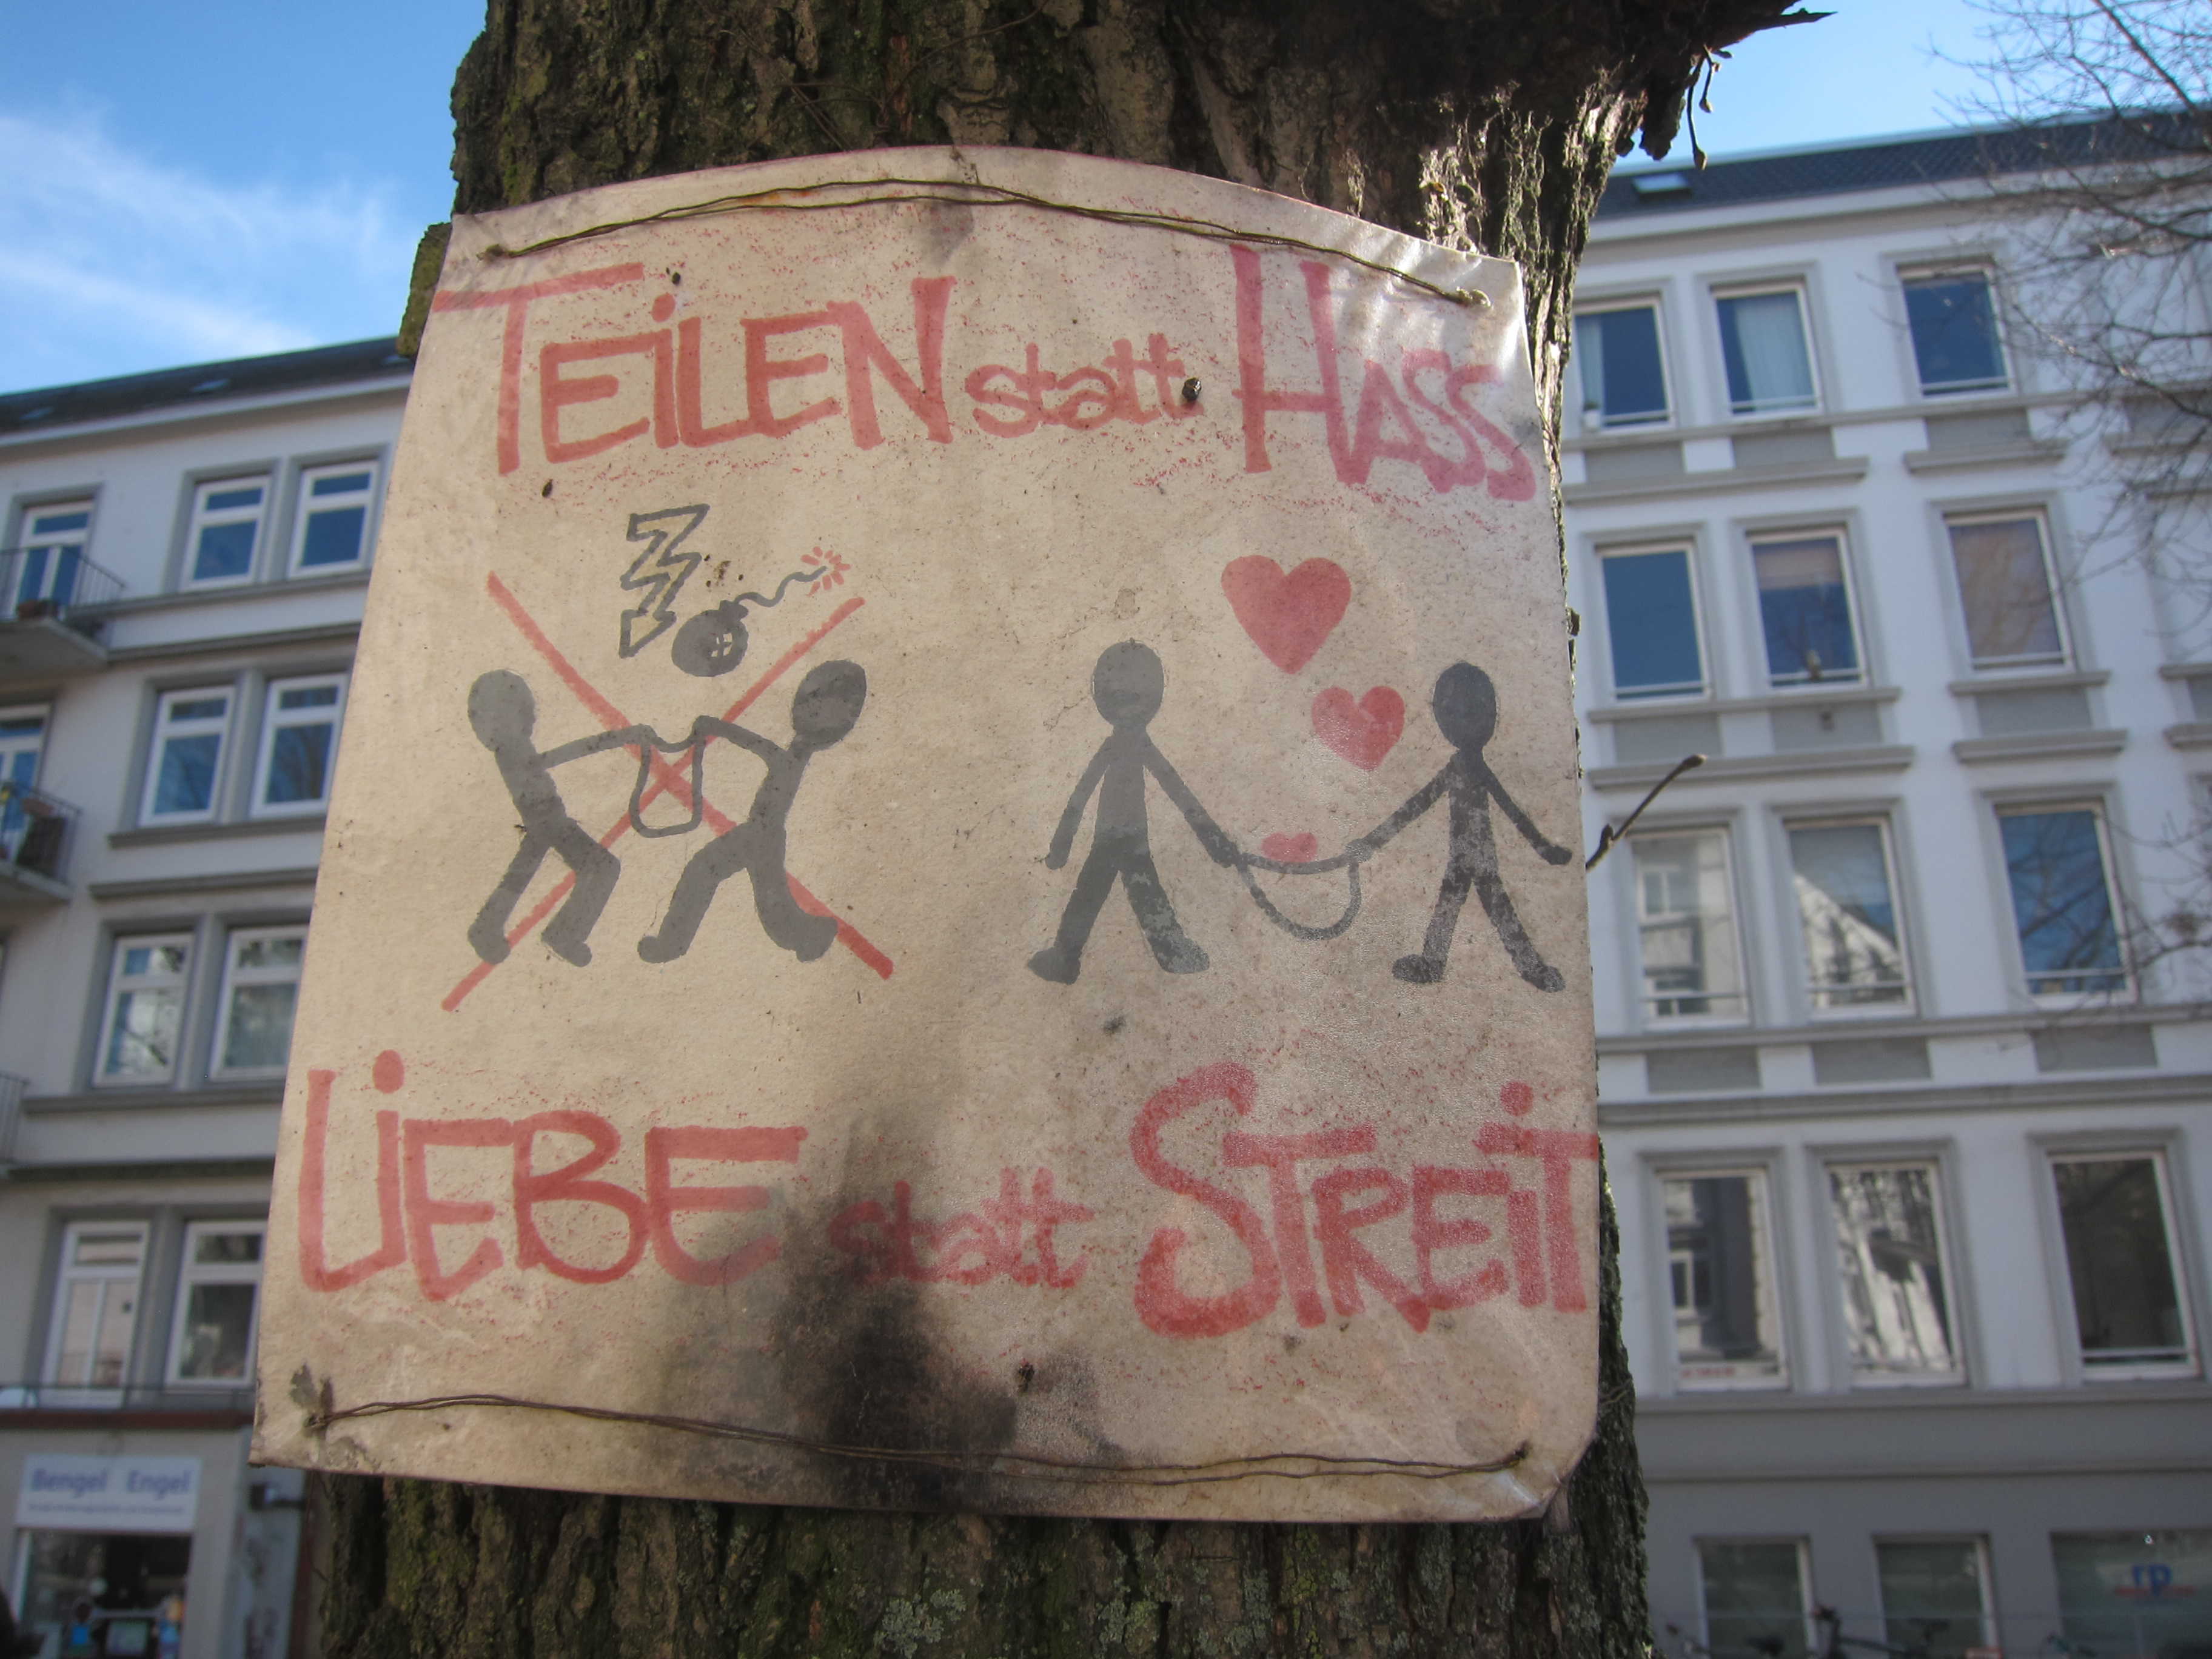 TEiLEN statt HASS
LiEBE statt STREiT
Bengel Engel
rp